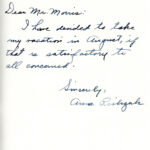 Dear Mr. Morris:
I have decided to take
my vacation in August, if
that is satisfactory to
all concerned.
Sincerely,
Anna